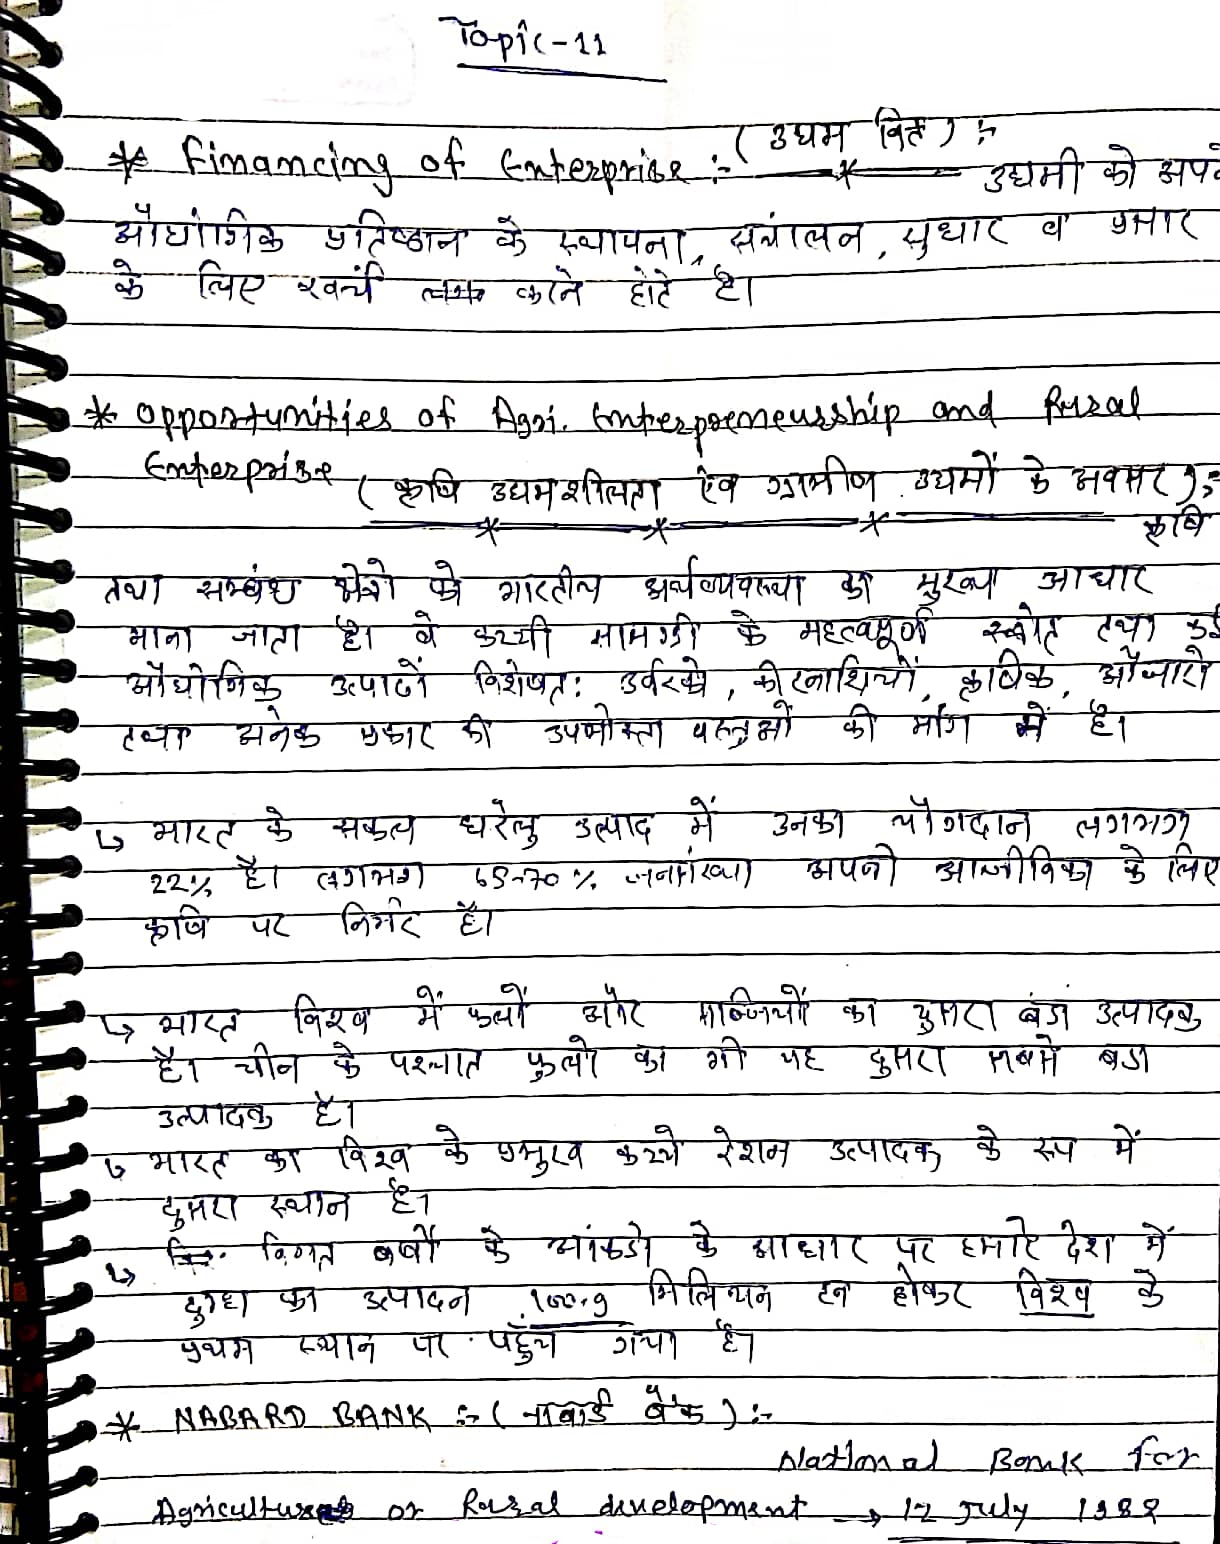 Topic-11
* Financing of Enterprise :- (उधम वित्त) :-
उद्यमी को अपने
औद्योगिक प्रतिष्ठान के स्थापना, संचालन, सुधार व प्रसार
के लिए खर्च करने होते है।
* Opportunities of Agri. Enterpreneurship and Rural
Enterprise (कृषि उधमशीलता एंव ग्रामीण उधमों के अवसर) :-
कृषि
तथा सम्बंध क्षेत्रो को भारतीय अर्थव्यवस्था का मुख्य आधार
माना जाता है। वे कच्ची सामग्री के महत्वपूर्ण स्त्रोत तथा कई
औद्योगिक उत्पादों विशेषत: उर्वरको, कीटनाशियों, कृषिक, औजारो
तथा अनेक प्रकार की उपभोक्ता वस्तुओं की मांग में है।
↳ भारत के सकल घरेलु उत्पाद में उनका योगदान लगभग
22% है। लगभग 65-70% जनसंख्या अपनी आजीविका के लिए
कृषि पर निर्भर है।
↳ भारत विश्व में फलों और सब्जियों का दुसरा बडा उत्पादक
है। चीन के पश्चात फुलो का भी यह दुसरा सबसे बडा
उत्पादक है।
↳ भारत का विश्व के प्रमुख कच्चे रेशम उत्पादक के रूप में
दुसरा स्थान है।
↳ विगत वर्षो के आंकडो के आधार पर हमारे देश में
दुग्ध का उत्पादन 100.9 मिलियन टन होकर विश्व के
प्रथम स्थान पर पहुँच गया है।
* NABARD BANK :- (नाबार्ड बैंक) :-
National Bank for
Agriculture or Rural development → 12 July 1982